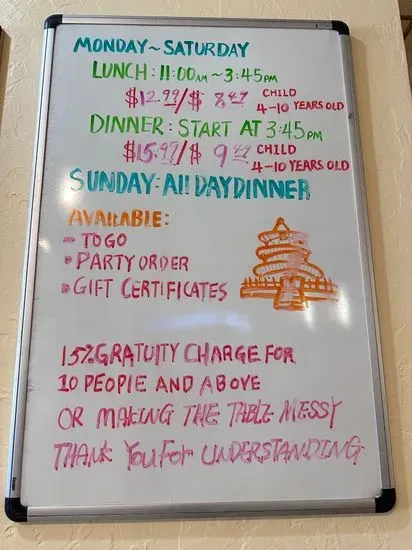 MONDAY~SATURDAY
LUNCH: 11:00AM~3:45PM
$12.99/$ 8.49 CHILD 4-10 YEARS OLD
DINNER: START AT 3:45PM
$15.99/$ 9.49 CHILD 4-10 YEARS OLD
SUNDAY: All DAY DINNER
AVAILABLE:
- TO GO
• PARTY ORDER
• GIFT CERTIFICATES
15% GRATUITY CHARGE FOR
10 PEOPLE AND ABOVE
OR MAKING THE TABLE MESSY
THANK YOU FOR UNDERSTANDING